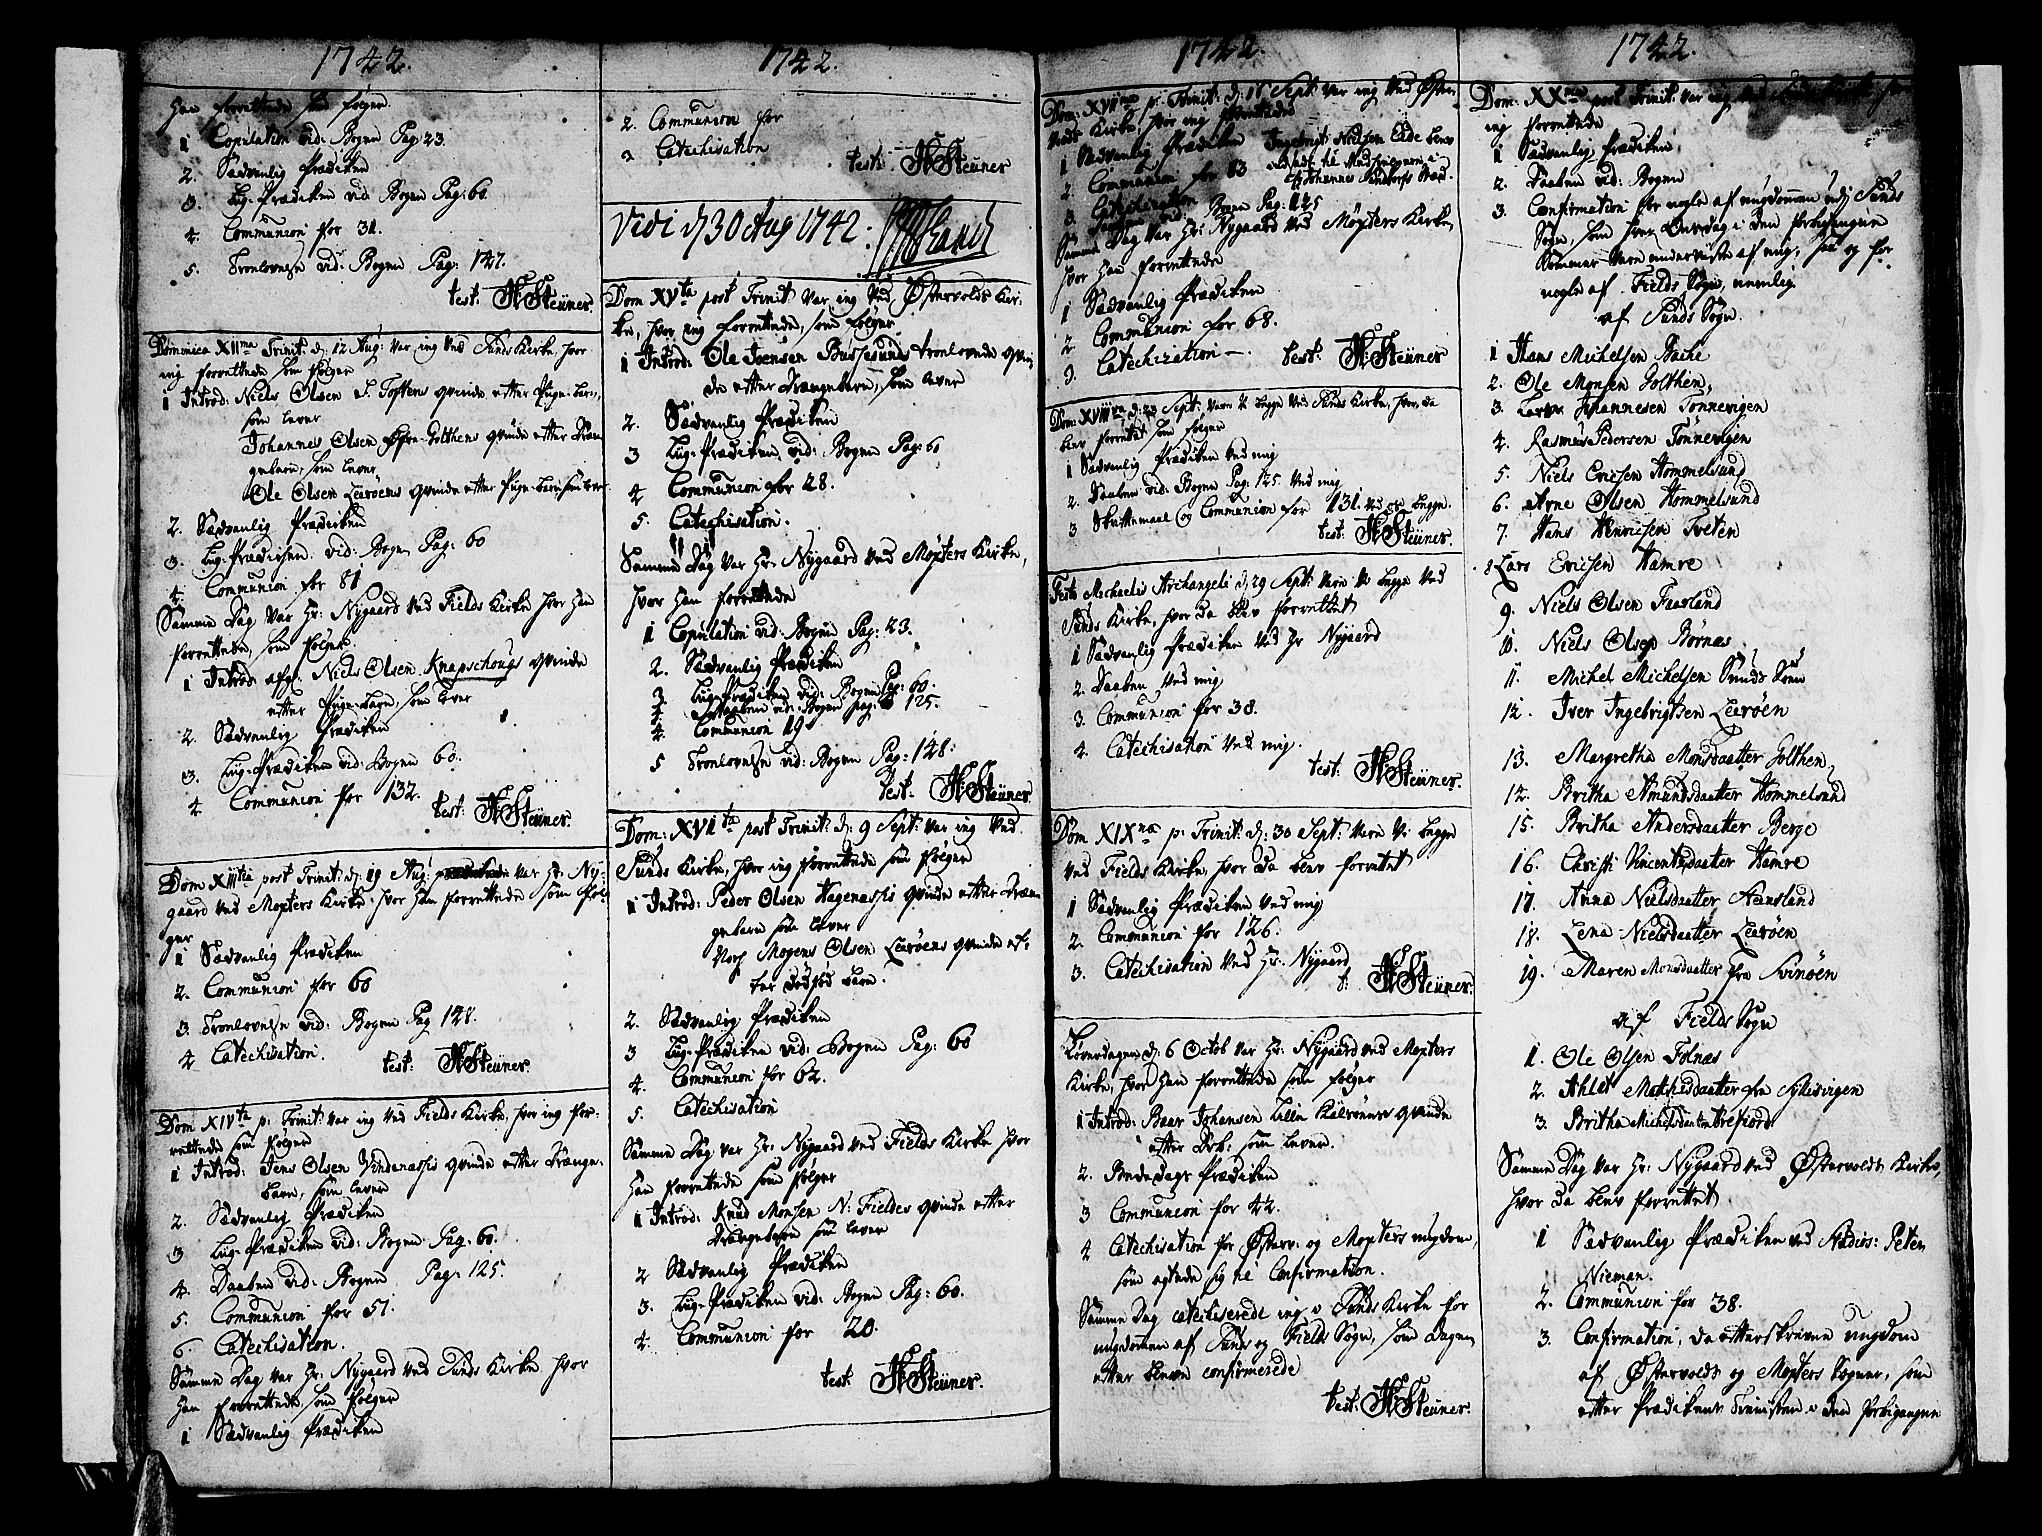 1742.
Han forrettede som følger
1 Copulation vid: Bogen Pag: 23.
2. Sædvanlig Prædiken
3. Liig-Prædiken vid: Bogen Pag: 60
4. Communion for 31.
5. Trolovelse vid: Bogen Pag: 147.
test: HSteüner.
Dominica XIIma Trinit: d: 12 Aug: var ieg ved Sunds Kirke, hvor
ieg forrettede som følger
1 Introd: Niels Olsen S. Toftens qvinde efter Pige-barn,
som lever
Johannes Olsen Øfre-Golthens qvinde efter Dren-
gebarn, som lever,
Ole Olsen Leeröens qvinde efter Pige-barn som lever
2. Sædvanlig Prædiken
3. Liig-Prædiken vid: Bogen Pag: 60
4. Communion for 81
Samme Dag var Hr: Nygaard ved Fields Kirke hvor Han
forrettede, som følger
1 Introd: afg: Niels Olsen Knapschougs qvinde
efter Pige-barn, som lever
2. Sædvanlig Prædiken
3. Liig-Prædiken vid: Bogen 60.
4 Communion for 132.
test: HSteüner.
Dom XIIItia post Trinit: d: 19 Aug: var Hr: Ny-
gaard ved Mögsters Kirke hvor Han forrettede som føl-
ger
1 Sædvanlig Prædiken
2. Communion for 60
3. Trolovelse vid: Bogen Pag 148.
4 Catechisation.
test: HSteüner.
Dom XIVta p: Trinit: var ieg ved Fields Kirke, hvor ieg for-
rettede som følger
1 Introd: Jens Olsen Vindenæssis qvinde efter Drenge-
barn, som lever
2. Sædvanlig Prædiken
3 Liig-Prædiken vid: Bogen Pag: 60.
4. Daaben vid: Bogen Pag: 125.
5. Communion for 51.
6. Catechisation.
Samme Dag var Hr: Nygaard ved Sunds Kirke hvor
Han forrettede, som følger
1 Sædvanlig Prædiken
1742.
2. Communion for
3 Catechisation
test: HSteüner
Vidi d 30 Aug 1742.
Dom XVta post Trinit: var ieg ved Østervolds Kir-
ke, hvor ieg forrettede, som følger
1 Introd: Ole Iversen Büssesunds trolovede qvin-
de efter Drengebarn, som lever
2. Sædvanlig Prædiken
3 Liig-Prædiken vid: Bogen Pag: 60
4 Communion for 28.
5. Catechisation.
Samme Dag var Hr: Nygaard ved Mögsters Kirke,
hvor Han forrettede
1 Copulation vid: Bogen Pag: 23.
2. Sædvanlig Prædiken
3. Liig-Prædiken vid: Bogen Pag: 60.
4. Daaben vid: Bogen pag: 125.
4. Communion 19
5 Trolovelse vid: Bogen Pag: 148.
Test: HSteüner.
Dom: XVIta post Trinit: d: 9 Sept: var ieg ved
Sunds Kirke, hvor ieg forrettede som følger
1 Introd: Peder Olsen Hagenæssis qvinde efter Dren-
gebarn som lever
Mogens Olsen Leeröens qvinde ef-
ter dødfød barn.
2. Sædvanlig Prædiken
3 Liig-Prædiken vid: Bogen Pag: 60
4. Communion for 62.
5. Catechisation
Samme Dag var Hr: Nygaard ved Fields Kirke hvor
Han forrettede som følger
1 Introd: Knud Monsen N: Fieldes qvinde efter
Drengebarn som lever
2 Sædvanlig Prædiken
3. Liig-Prædiken vid: Bogen Pag: 60.
4. Communion for 20.
test: HSteüner.
1742.
Dom: XVIIma p: Trinit: d: 16 Sept: var ieg ved Øster-
volds Kirke, hvor ieg forrettede
1 Sædvanlig Prædiken
2. Communion for 83
3 Catechisation
Daaben vid: Bogen Pag: 125
Ingebrigt Nielsen Eide blev
Samme Dag var Hr: Nygaard ved Mögsters Kirke,
hvor Han forrettede
1 Sædvanlig Prædiken
2 Communion for 68.
3. Catechization —.
test: HSteüner
Dom: XVIIIva d: 23 Sept: vare vi begge ved Sunds Kirke, hvor da
blev forrettet som følger
1 Sædvanlig Prædiken ved mig
2. Daaben vid: Bogen Pag: 125 ved mig
3 Skriftemaal og Communion for 131. ved os begge.
test: HSteüner.
Festo Michaelis Archangeli d: 29 Sept: vare vi begge ved
Sunds Kirke, hvor da blev forrettet
1 Sædvanlig Prædiken ved Hr Nygaard
2. Daaben ved mig
3. Communion for 38.
4. Catechisation ved mig.
test: HSteüner.
Dom XIXna p: Trinit: d: 30 Sept: vare vi begge
ved Fields Kirke, hvor da blev forrettet
1 Sædvanlig Prædiken ved mig
2. Communion for 126.
3. Catechisation ved Hr: Nygaard
t: HSteüner.
Løverdagen d: 6 Octob var Hr: Nygaard ved Mögsters
Kirke, hvor Han forrettede som følger
1 Introd: Baar Johansen Lille Kalsöens qvinde
efter Drb: som lever.
2. Bededags Prædiken
3 Communion for 42.
4 Catechisation for Østerv: og Mögsters ungdom,
som agtede sig til Confirmation.
Samme Dag catechiserede ieg i Sunds Kirke for
ungdomen af Sunds og Fields Sogn, som Dagen
efter bleve confirmerede
test: HSteüner.
1742.
Dom: XXma post Trinit: var ieg ved Sunds Kirke hvor
ieg forrettede
1 Sædvanlig Prædiken
2. Daaben vid: Bogen
3. Confirmation for nogle af ungdommen udj Sunds
Sogn som hver Onsdag i den forbigangene
Sommer vare underviiste af mig, saa og for
nogle af Fields Sogn, nemlig
af Sunds Sogn.
1 Hans Michelsen Bache
2. Ole Monsen Golthen,
3. Lars Johannesen Tönnevigen
4. Rasmus Pedersen Tönnevigen
5. Niels Ericsen Hommelsund
6. Arne Olsen Hommelsund
7. Hans Henricsen Tveten
8 Lars Ericsen Hamre
9. Niels Olsen Faasland
10. Niels Olsen Börnæs
11. Michel Michelsen Sunds Söen
12. Iver Ingebrigtsen Leeröen
13. Margretha Monsdaatter Golthen,
14. Britha Amundsdaatter Hommelsund
15. Britha Andersdaatter Berge
16. Christi Vincentsdaatter Hamre
17. Anna Nielsdaatter Steensland
18. Lena Nielsdaatter Leeröen
19. Maren Monsdaatter fra Svinöen
af Fields Sogn
1. Ole Olsen Folnæs
2. Ahlet Mathisdaatter fra Syltevigen
3. Britha Michelsdaatter Trefiord
Samme Dag var Hr: Nygaard ved Østervolds Kirke,
hvor da blev forrettet
1 Sædvanlig Prædiken ved Studios: Peter
Nieman.
2. Communion for 38.
3. Confirmation, da efterskrevne ungdom
af Østervolds og Mögsters Sogner, som
efter Prædikene Tienisten i den forbigangne